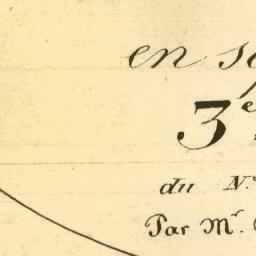 en
3e
du N.
Par Mr.